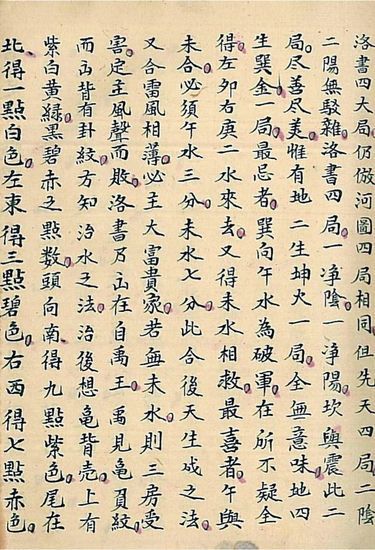 洛書四大局仍倣河圖四局相同但先天四局二陰
二陽無駁雜洛書四局一凈陰一凈陽坎與震此二
局尽善尽美惟有地二生坤火一局全無意味地四
生巽金一局最忌者巽向午水為破軍在所不疑全
得左卯右庚二水來去又得未水相救最喜者午與
未合必須午水三分未水七分此合後天生成之法
又合雷風相薄必主大富貴家若無未水則三房受
害定主風聲而敗洛書乃出在自禹王禹見龜負紋
而出背有卦紋方知治水之法治後想龜背壳上有
紫白黄綠黒碧赤之點数頭向南得九點紫色尾在
北得一點白色左東得三點碧色右西得七點赤色